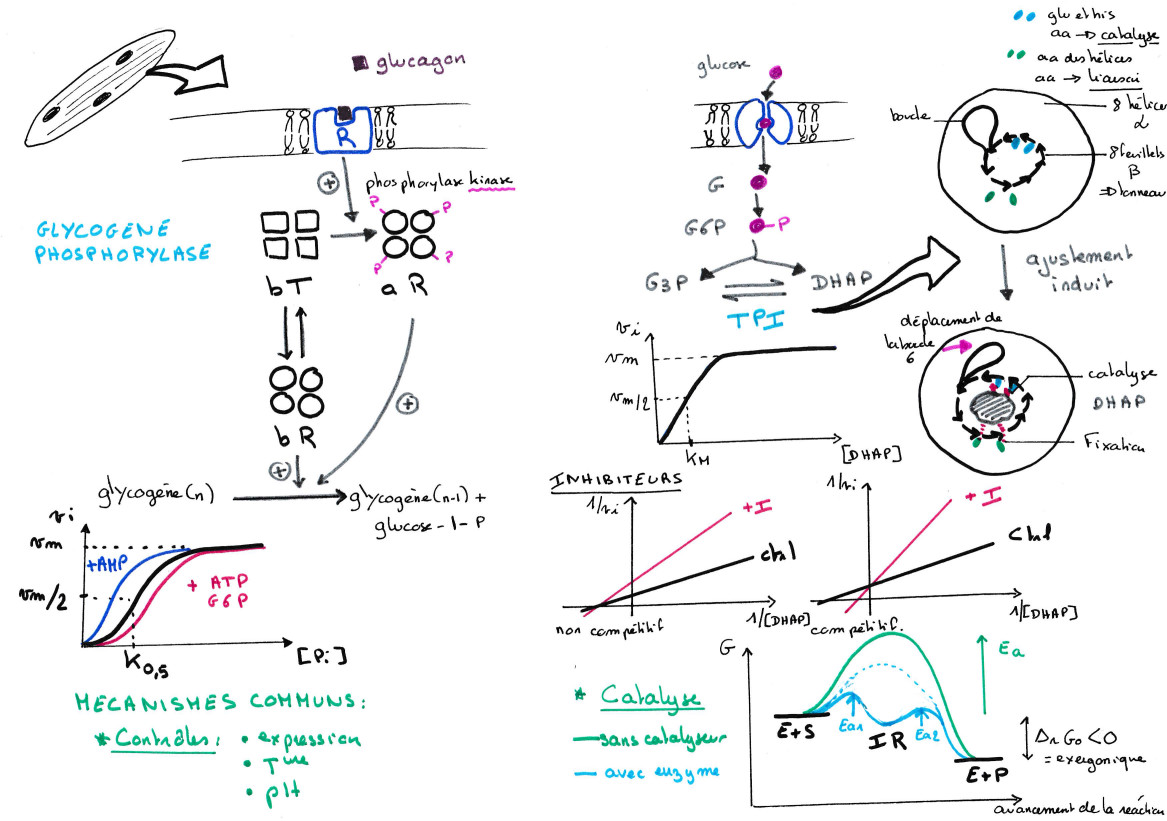 glucagon
R
+
phosphorylase kinase
P
P
P
P
GLYCOGENE
PHOSPHORYLASE
bT
aR
bR
+
+
glycogène(n)
glycogène(n-1) +
glucose-1-P
vi
vm
vm/2
+AMP
+ ATP
G6P
K0,5
[Pi]
MECANISMES COMMUNS:
* Contrôles: • expression
• Ture
• pH
glucose
G
G6P
P
G3P
DHAP
TPI
vi
vm
vm/2
KM
[DHAP]
glu et his
aa → catalyse
aa des hélices
aa → liaison
boucle
8 hélices
α
8 feuillets
β
⇒ tonneau
ajustement
induit
déplacement de
la boucle
6
catalyse
DHAP
Fixation
INHIBITEURS
1/vi
+I
ctrl
1/[DHAP]
non compétitif
1/vi
+I
ctrl
1/[DHAP]
compétitif.
* Catalyse
sans catalyseur
avec enzyme
G
E+S
Ea1
IR
Ea2
E+P
Ea
ΔrG0<0
= exergonique
avancement de la réaction